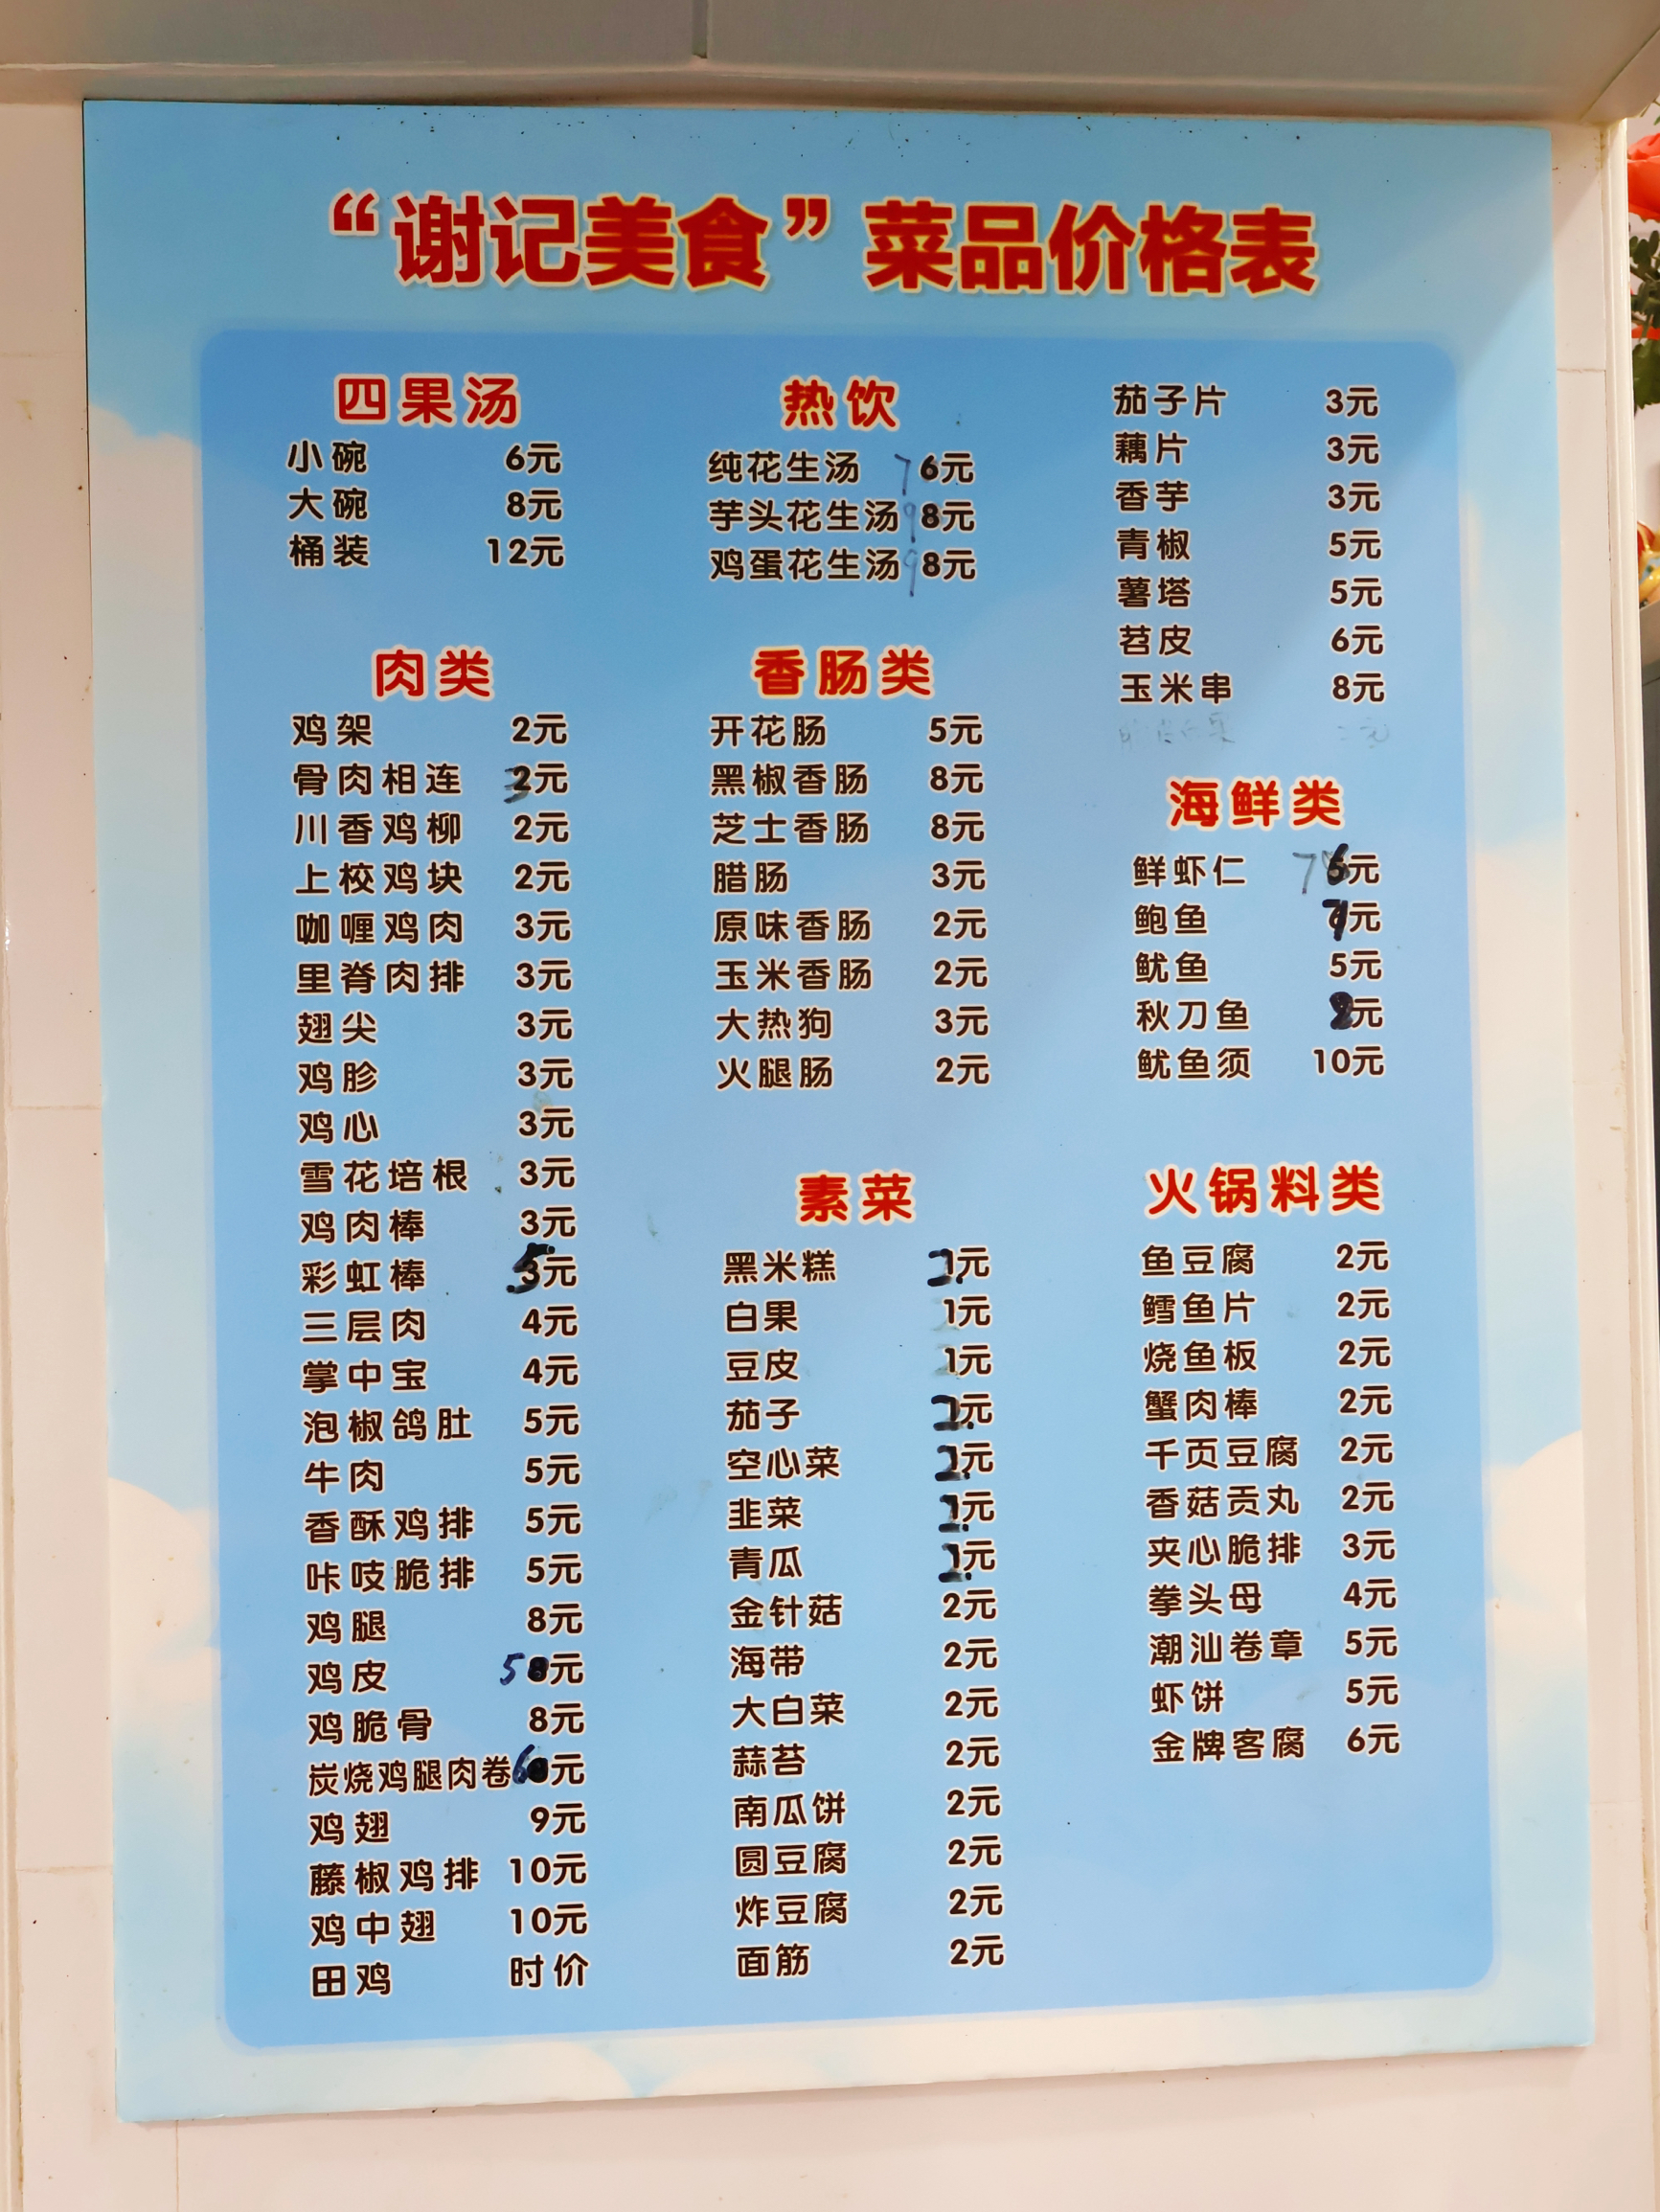 “谢记美食”菜品价格表
四果汤
小碗 6元
大碗 8元
桶装 12元
肉类
鸡架 2元
骨肉相连 3元
川香鸡柳 2元
上校鸡块 2元
咖喱鸡肉 3元
里脊肉排 3元
翅尖 3元
鸡胗 3元
鸡心 3元
雪花培根 3元
鸡肉棒 3元
彩虹棒 5元
三层肉 4元
掌中宝 4元
泡椒鸽肚 5元
牛肉 5元
香酥鸡排 5元
咔吱脆排 5元
鸡腿 8元
鸡皮 5元
鸡脆骨 8元
炭烧鸡腿肉卷 6元
鸡翅 9元
藤椒鸡排 10元
鸡中翅 10元
田鸡 时价
热饮
纯花生汤 7 6元
芋头花生汤 9 8元
鸡蛋花生汤 9 8元
香肠类
开花肠 5元
黑椒香肠 8元
芝士香肠 8元
腊肠 3元
原味香肠 2元
玉米香肠 2元
大热狗 3元
火腿肠 2元
素菜
黑米糕 2元
白果 1元
豆皮 1元
茄子 2元
空心菜 2元
韭菜 2元
青瓜 2元
金针菇 2元
海带 2元
大白菜 2元
蒜苔 2元
南瓜饼 2元
圆豆腐 2元
炸豆腐 2元
面筋 2元
茄子片 3元
藕片 3元
香芋 3元
青椒 5元
薯塔 5元
苕皮 6元
玉米串 8元
海鲜类
鲜虾仁 元
鲍鱼 7元
鱿鱼 5元
秋刀鱼 元
鱿鱼须 10元
火锅料类
鱼豆腐 2元
鳕鱼片 2元
烧鱼板 2元
蟹肉棒 2元
千页豆腐 2元
香菇贡丸 2元
夹心脆排 3元
拳头母 4元
潮汕卷章 5元
虾饼 5元
金牌客腐 6元